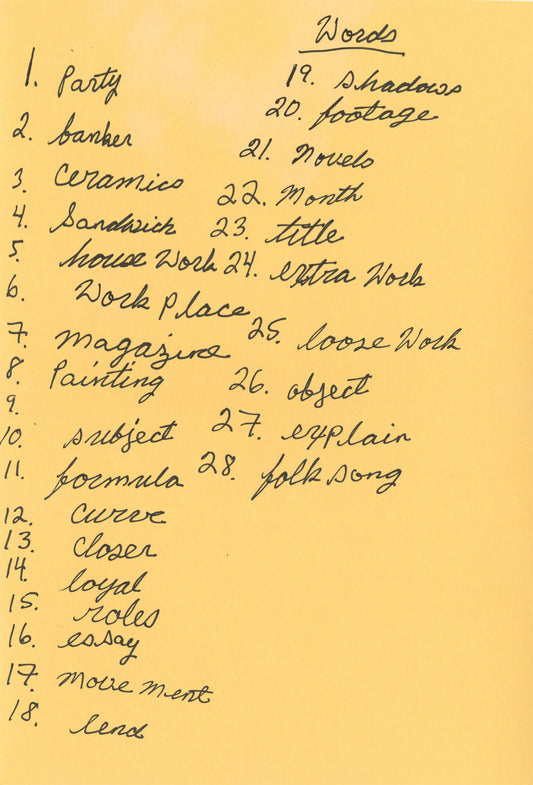 Words
1. Party
2. banker
3. Ceramics
4. Sandwich
5. house Work
6. Work Place
7. magazine
8. Painting
9.
10. subject
11. formula
12. curve
13. closer
14. loyal
15. roles
16. essay
17. move ment
18. lend
19. shadows
20. footage
21. Novels
22. Month
23. title
24. extra Work
25. loose Work
26. object
27. explain
28. folk song